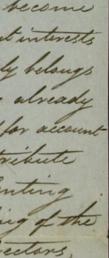 become
interests
belongs
already
for account
tribute
of the
ectors,